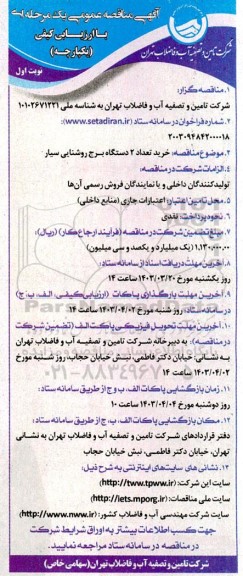 آگهی مناقصه عمومی یک مرحله ای
با ارزیابی کیفی
(یکپارچه)
شرکت تامین و تصفیه آب و فاضلاب تهران
نوبت اول
۱. مناقصه گزار:
شرکت تامین و تصفیه آب و فاضلاب تهران به شناسه ملی ۱۰۱۰۲۶۷۱۲۲۱
۲. شماره فراخوان در سامانه ستاد (www.setadiran.ir):
۲۰۰۳۰۹۴۸۴۲۰۰۰۰۱۸
۳. موضوع مناقصه: خرید تعداد ۲ دستگاه برج روشنایی سیار
۴. الزامات شرکت در مناقصه:
تولیدکنندگان داخلی و یا نمایندگان فروش رسمی آن‌ها
۵. محل تامین اعتبار: اعتبارات جاری (منابع داخلی)
۶. نحوه پرداخت: نقدی
۷. مبلغ تضمین شرکت در مناقصه (فرایند ارجاع کار) (ریال):
۱,۱۳۰,۰۰۰,۰۰۰ (یک میلیارد و یکصد و سی میلیون)
۸. آخرین مهلت دریافت اسناد از سامانه ستاد:
روز یکشنبه مورخ ۱۴۰۳/۰۳/۲۰ ساعت ۱۴
۹. آخرین مهلت بارگذاری پاکات (ارزیابی کیفی، الف، ب، ج)
در سامانه ستاد: روز شنبه مورخ ۱۴۰۳/۰۴/۰۲ ساعت ۱۴
۱۰. آخرین مهلت تحویل فیزیکی پاکت الف (تضمین شرکت
در مناقصه): به دبیرخانه شرکت تامین و تصفیه آب و فاضلاب تهران
به نشانی: خیابان دکتر فاطمی، نبش خیابان حجاب، روز شنبه مورخ
۱۴۰۳/۰۴/۰۲ ساعت ۱۴
۱۱. زمان بازگشایی پاکات الف، ب و ج از طریق سامانه ستاد:
روز دوشنبه مورخ ۱۴۰۳/۰۴/۰۴ ساعت ۱۰
۱۲. مکان بازگشایی پاکات الف، ب، ج از طریق سامانه ستاد:
دفتر قراردادهای شرکت تامین و تصفیه آب و فاضلاب تهران به نشانی
تهران، خیابان دکتر فاطمی، نبش خیابان حجاب
۱۳. نشانی های سایت‌های اینترنتی به شرح ذیل:
سایت این شرکت: (http://tww.tpww.ir)
سایت ملی مناقصات: (http://iets.mporg.ir)
سایت شرکت مهندسی آب و فاضلاب کشور: (http://www.nww.ir)
جهت کسب اطلاعات بیشتر به اوراق شرایط شرکت
در مناقصه در سامانه ستاد مراجعه نمایید.
شرکت تامین و تصفیه آب و فاضلاب تهران (سهامی خاص)